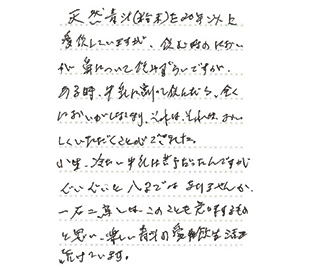 天然青汁(粉末)を20年以上
愛飲していますが、飲む時のにおい
が鼻について飲みずらいですが、
ある時、牛乳に割って飲んだら、全く
においがしなくなり、それは、それは、おい
しくいただくことができました。
小生、冷たい牛乳はきらだったんですが
ぐいぐいと八までは ありませんが、
一石二鳥とは このことを意味するもの
と思い、楽しい青汁の愛飲生活を
続けています。